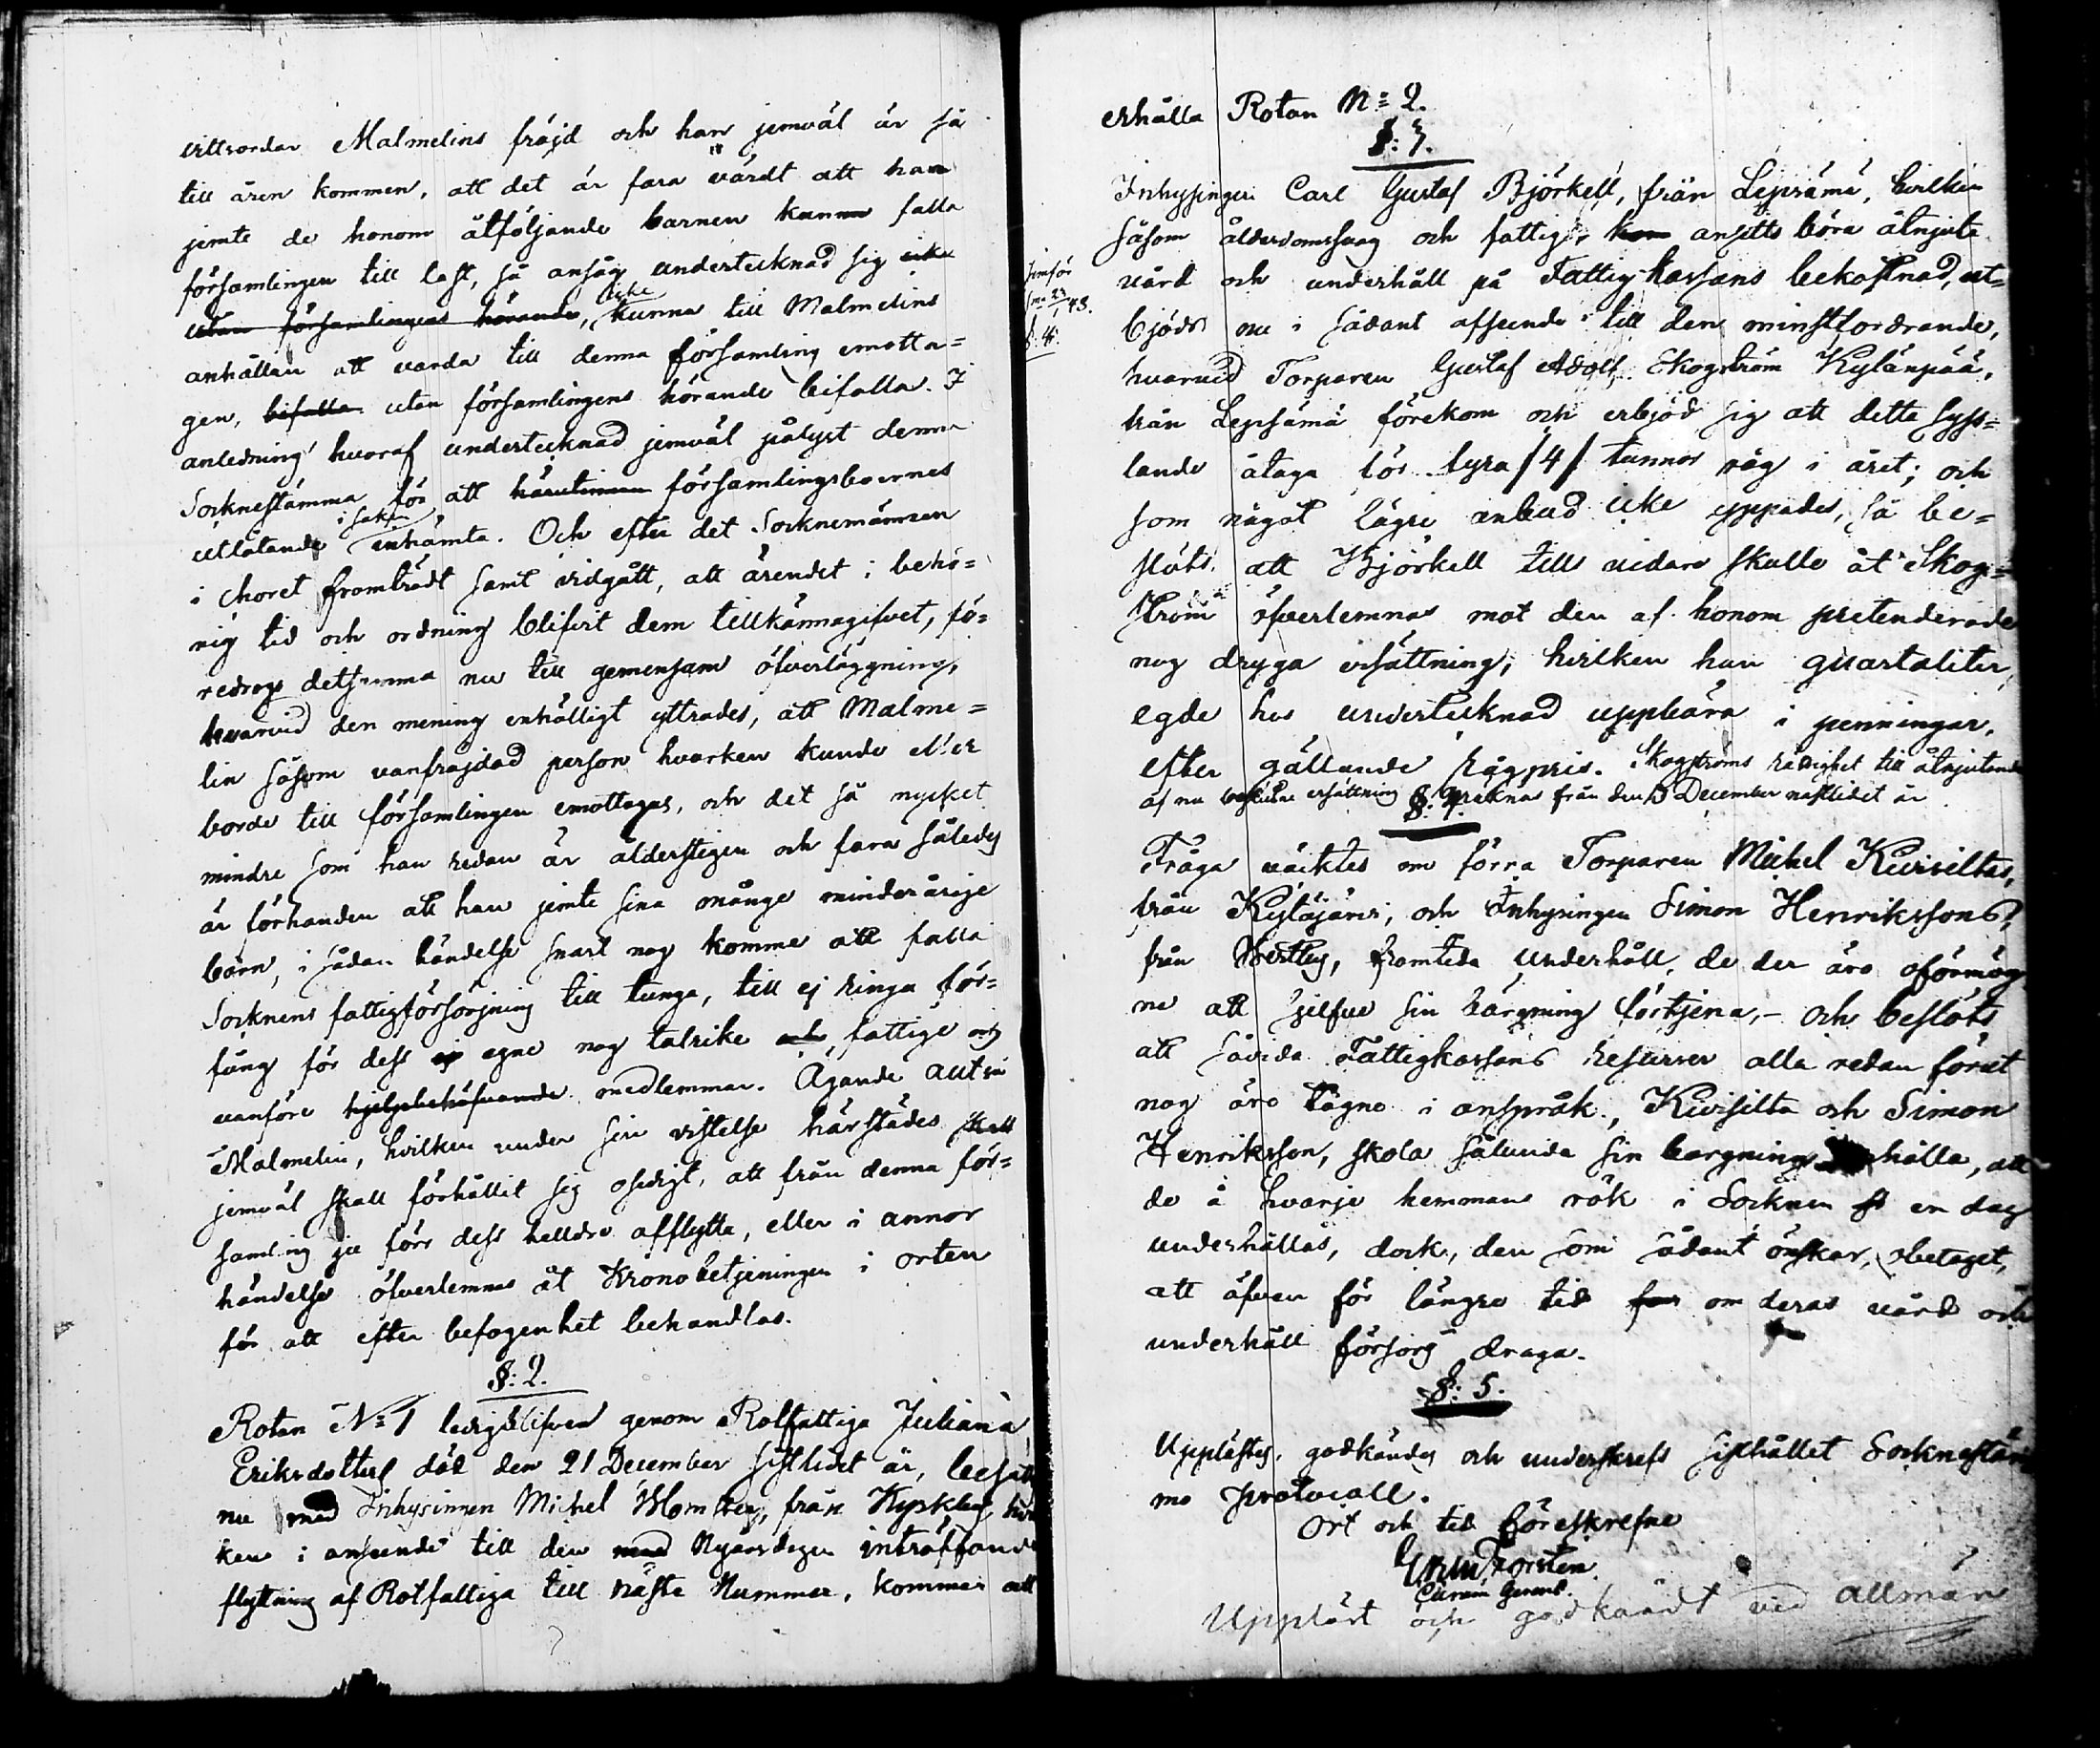 vittsordar Malmelins fräjd och han jemväl är så
till åren kommen, att det är fara värdt att han
jemte de honom åtföljande barnen kunna falla
församlingen till last, så ansåg undertecknad sig icke
utan församlingens hörande, icke kunna till Malmelins
anhållan att varda till denna församling emotta=
gen, bifalla utan församlingens hörande bifalla. I
anledning hvaraf undertecknad jemväl pålyst denna
Socknestämma för att härutinnan församlingsboernes
utlåtande i saken inhämta. Och efter det Socknemännen
i choret framträdt samt vidgått, att ärendet i behö=
rig tid och ordning blifvit dem tillkännagifvet, fö=
redrogs detsamma nu till gemensam öfverläggning,
hvarvid den mening enhälligt yttrades, att Malme=
lin såsom vanfräjdad person hvarken kunde eller
borde till församlingen emottagas, och det så mycket
mindre som han redan är ålderstigen och fara således
är förhanden att han jemte sina många minderårige
barn, i sådan händelse snart nog komme att falla
Socknens fattigförsörjning till tunga, till ej ringa för=
fång för dess ej egne nog talrike och fattige och
vanföre hjelpbehöfvande medlemmar. Ägande alltså
Malmelin, hvilken under sin vistelse härstädes skall
jemväl skall förhållit sig osedigt, att från denna för=
samling ju förr dess helldre afflytta, eller i annor
händelse öfverlemnas åt Kronobetjeningen i orten
för att efter befogenhet behandlas.
§: 2.
Rotan No 1 ledigblifven genom Rotfattiga Juliana
Eriksdotters död den 21 December sistledet år, besatt
nu med Inhysingen Michel Blomberg, från Kyrkby, hvil
ken i anseende till den med Nyårsdagen inträffande
flyttning af Rotfattiga till näste Nummer, kommer att
erhålla Rotan No 2.
§: 3.
Inhysingen Carl Gustaf Björkell, från Lepsämä, hvilken
såsom ålderdomssvag och fattig, kom ansetts böra åtnjuta
vård och underhåll på Fattigkassans bekostnad, ut=
bjöds nu i sådant afseende till den minstfordrande,
hvarvid Torparen Gustaf Adolf Skogström Kylänpää,
från Lepsämä förekom och erbjöd sig att detta syss=
lande åtaga för fyra /4/ tunnor råg i året; och
som något lägre anbud icke yppades, så be=
slöts, att Björkell tills vidare skulle åt Skog=
ström öfverlemnas mot den af honom pretenderade
nog dryga ersättning, hvilken han quartaliter
egde hos undertecknad uppbära i penningar,
efter gällande rågpris. Skogströms rättighet till åtnjutande
af nu beslutne ersättning räknas från den 15 December nästledet år
§: 4.
Fråga väcktes om förra Torparen Michel Kivisiltas,
från Kytäjärvi, och Inhysingen Simon Henrikssons,
från framtida underhåll, de der äro oförmög
ne att sjelfve sin bärgning förtjena,- och beslöts
att såvida Fattigkassans resurser alla redan förut
nog äro tagne i anspråk, Kivisilta och Simon
Henriksson, skola sålunda sin bärgning hålla, att
de å hvarje hemmans rök i Socknen en dag
underhållas, dock, den som sådant önskar, obetaget,
att äfven för längre tid om deras vård och
underhåll försorg draga.
§: 5.
Upplästes, godkändes och underskrefs sisthållet Socknestäm
mo protocoll.
Ort och tid föreskrefne
Forstén
Curam Gerens.
Uppläst och godkändt vid allmän
Jemför
43.
§: 4.